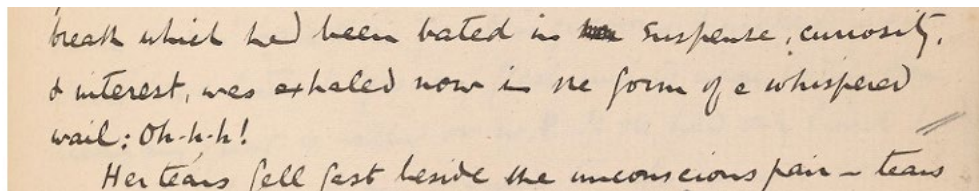 breath which had been bated in suspense, curiosity,
& interest, was exhaled now in the form of a whispered
wail: Oh-h-h!
Her tears fell fast beside the unconscious pair – tears